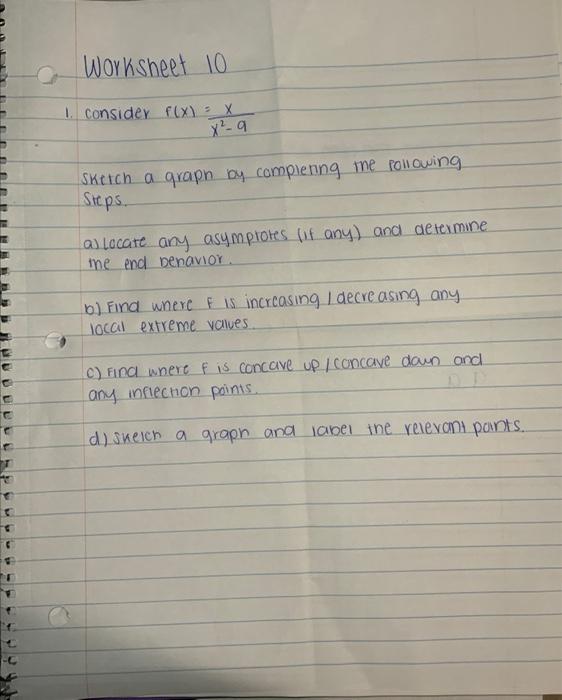 Worksheet 10
1. consider f(x) = x
x²-9
Sketch a graph by completing the following
Steps.
a) Locate any asymptotes (if any) and determine
the end behavior.
b) Find where f is increasing / decreasing any
local extreme values.
c) Find where f is concave up / concave down and
any inflection points.
d) Sketch a graph and label the relevant points.